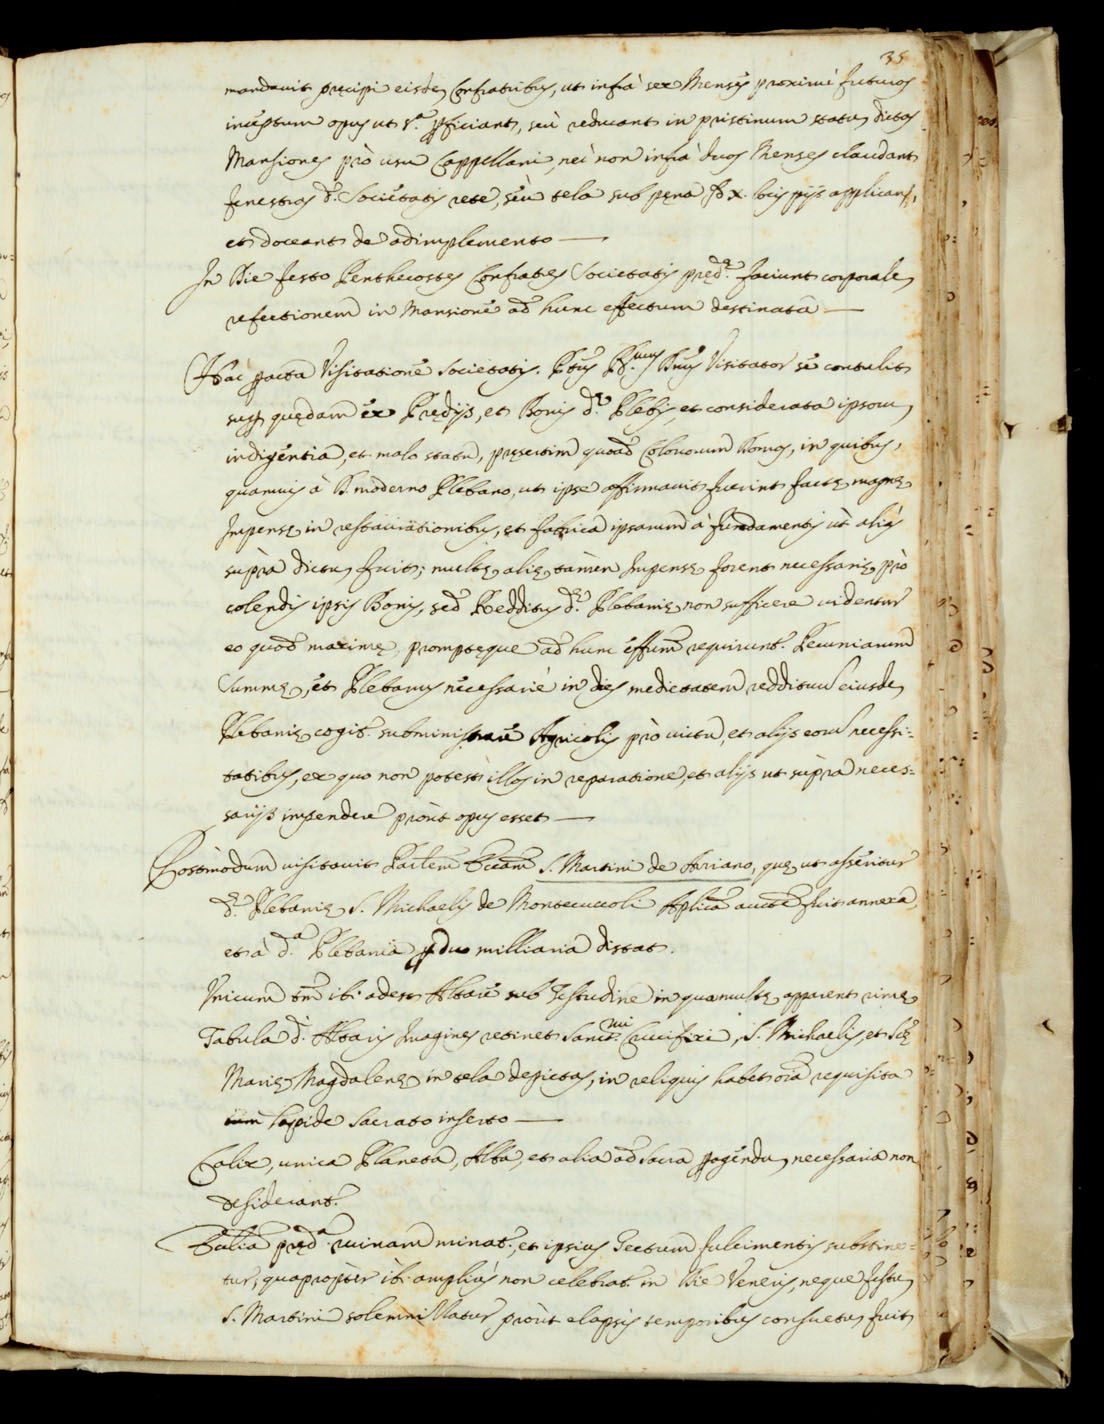 35
mandavit pręcipi eisdẽ Confratribus, ut infrà sex Menses proximè futuros
inceptum opus ut s.ª perficiant, seù reducant in pristinum statũ dictas
Mansiones prò usu Cappellani, nec non infrà duos Menses claudant
fenestras d.ę Societatis rete, sèu tela sub pęna x. locis pijs applican.,
et doceant de adimplemento
In Die festo Penthecostes Confratres Societatis pręd.ę faciunt corporalẽ
refectionem in Mansione ad hunc effectum destinata
Hac peracta Visitatione Societatis. Ptus R.mus Dnus Visitator se contulit
sup quędam ex Prędijs, et Bonis d.ę Plebis, et considerata ipsorũ
indigentia, et malo statu, pręsertim quoad Colonorum Domos, in quibus,
quamvis à moderno Plebano, ut ipse affirmavit fuerint factę magnę
Impensę in restaurationibus, et fabrica ipsarum à fundamentis ùt aliàs
suprà dictũ fuit; multę alię tamen Impensę forent necessarię prò
colendis ipsis Bonis, sed Redditus d.ę Plebanię non sufficere videntur
eo quod maximę, promptęque ad hunc effum requirunt. Pecuniarum
Summę, et Plebanus necessariè in dies medietatem reddituũ eiusdẽ
Plebanię cogit. subministrare Agricolis prò victu, et alijs eorũ necessi=
tatibus, ex quo non potest illos in reparatione, et alijs ut suprà neces=
sarijs impendere proùt opus esset
Postmodum visitavit Parlem Ecclam S. Martini de Ariano, quę ut asseritur
d.ę Plebanię S. Michaelis de Montecuccoli Aplica aucte fuit annexa,
et à d.ª Plebania p duo milliaria distat.
Unicum tm̃ ibi adest Altare sub Testudine in qua multę apparent rimę
Tabula d.i Altaris Imagines retinet Sanct.mi Crucifixi, S. Michaelis, et Stę
Marię Magdalenę in tela depictas, in reliquis habet oĩa requisita
cum Lapide Sacrato inserto
Calix, unica Planeta, Alba, et alia ad Sacra peragendũ necessaria non
desiderant.
Ecclia pręd.ª ruinam minat., et ipsius Tectum fulcimentis sustine=
tur, quapropter ibi ampliùs non celebrat. in Die Veneris, neque festũ
S. Martini solemnizatur proùt elapsis temporibus consuetũ fuit